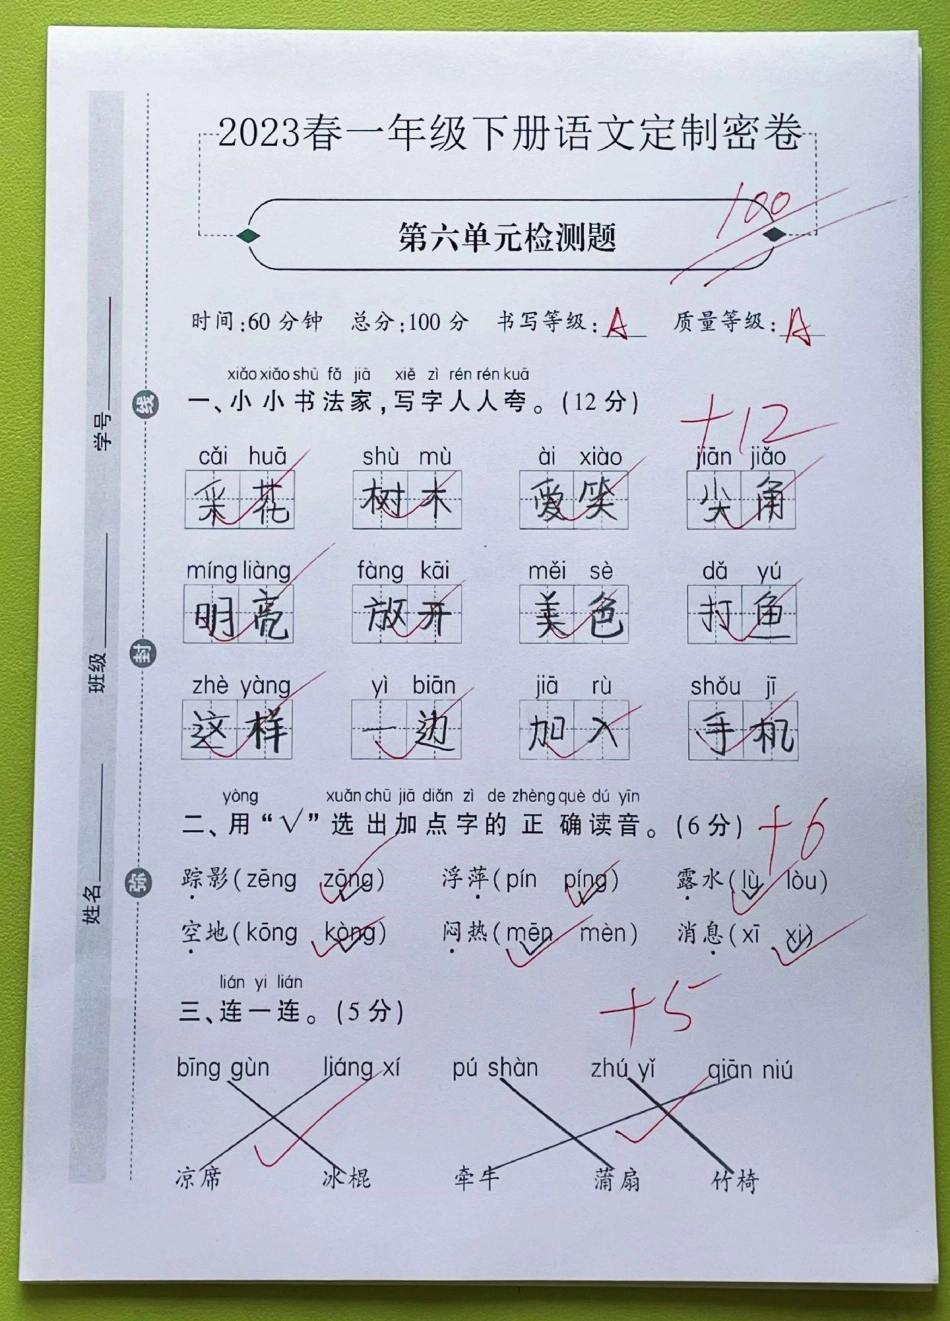 2023春一年级下册语文定制密卷
第六单元检测题
100
时间:60分钟 总分:100分 书写等级:A 质量等级:A
xiǎo xiǎo shū fǎ jiā xiě zì rén rén kuā
一、小小书法家,写字人人夸。(12分) +12
cǎi huā shù mù ài xiào jiān jiǎo
采花 树木 爱笑 尖角
míng liàng fàng kāi měi sè dǎ yú
明亮 放开 美色 打鱼
zhè yàng yì biān jiā rù shǒu jī
这样 一边 加入 手机
yòng xuǎn chū jiā diǎn zì de zhèng què dú yīn
二、用“√”选出加点字的正确读音。(6分) +6
踪影(zēng zōng) 浮萍(pín píng) 露水(lù lòu)
空地(kōng kòng) 闷热(mēn mèn) 消息(xī xi)
lián yi lián
三、连一连。(5分) +5
bīng gùn liáng xí pú shàn zhú yǐ qiān niú
凉席 冰棍 牵牛 蒲扇 竹椅
学号
班级
姓名
线
封
弥